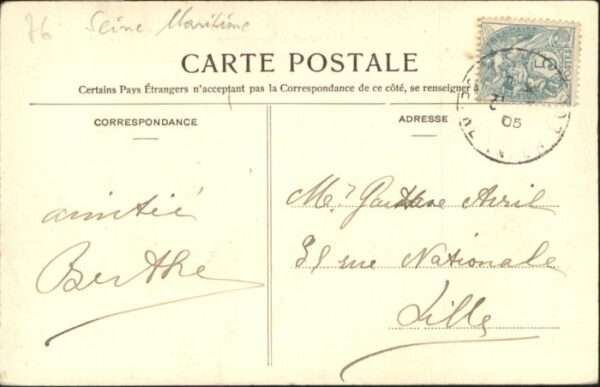 76 Seine Maritime
CARTE POSTALE
Certains Pays Étrangers n'acceptant pas la Correspondance de ce côté, se renseigner à
CORRESPONDANCE
ADRESSE
05
amitié
Berthe
Mr Gustave Avril
31 rue Nationale
Lille